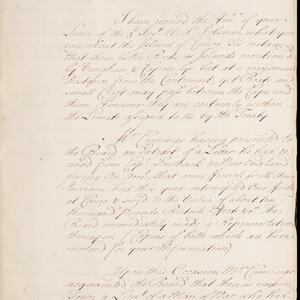 I have received the Hon.r of your
Letter of the 2 Sept. N. S. I observe what you
say about the Island of Canço. 'Tis certain
that those little Rocks or Islands mention'd
by Gentlemen &
Distance from the Continent, yet Boats and
small Craft may pass between the Cape and
them, However they are certainly within
the Limits assigned to Us by the Treaty.
Mr. Cummings having presented to
the Board an Extract of a Letter he has re-
ceived from Cap.t Southack in New England
giving an Acc.t that some French and
Indians has this year interrupted Our
at Canço & seized to the Value of about ten
thousand Pounds British Stock &c. the
Board immediately made a Representation
thereupon (Copies of both which are here in-
closed for your Information)
Upon this Occasion Mr. Cummings
acquainted the Board that there is now in
Town a Lieu.t of a Man of War who that